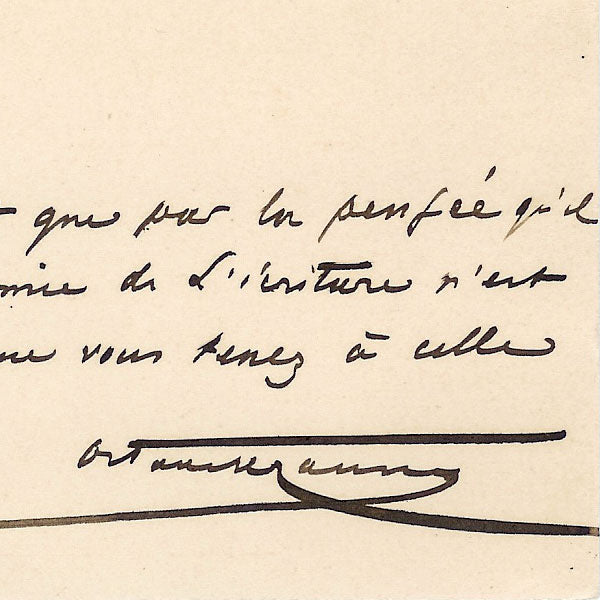 que par la pensée qu'il
mie de l'écriture n'est
ue vous tenez à celle
Octave Uzanne